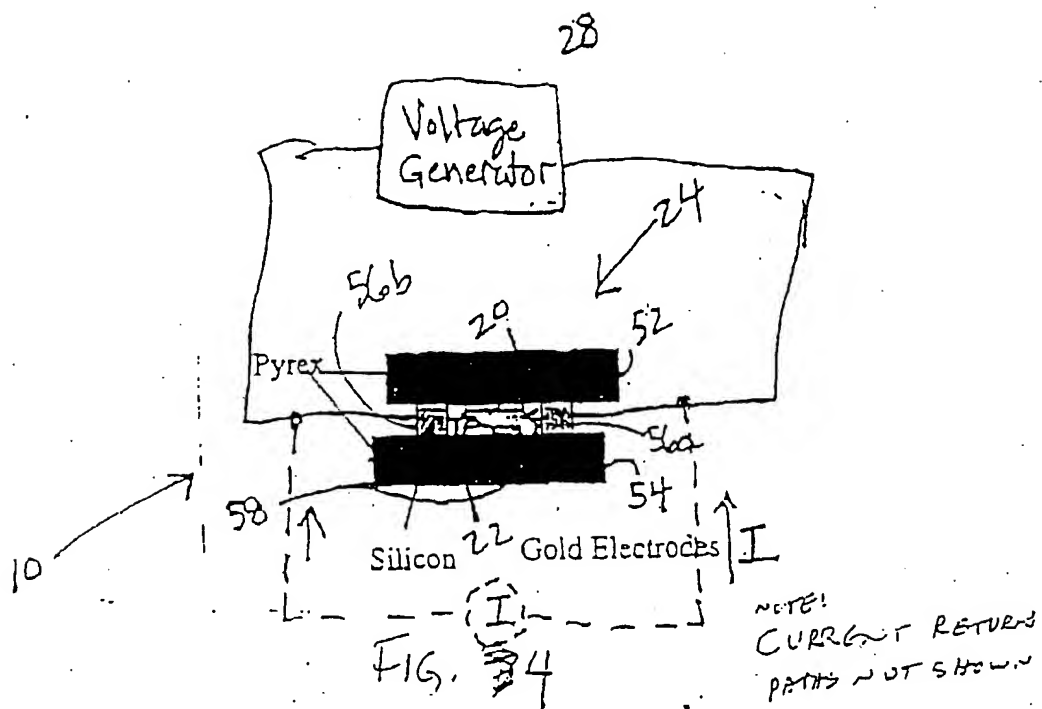 28
Voltage
Generator
24
56b
20
52
Pyrex
56a
54
58
10
Silicon
22
Gold Electrodes
I
I
FIG. 4
NOTE!
CURRENT RETURN
PATHS NOT SHOWN